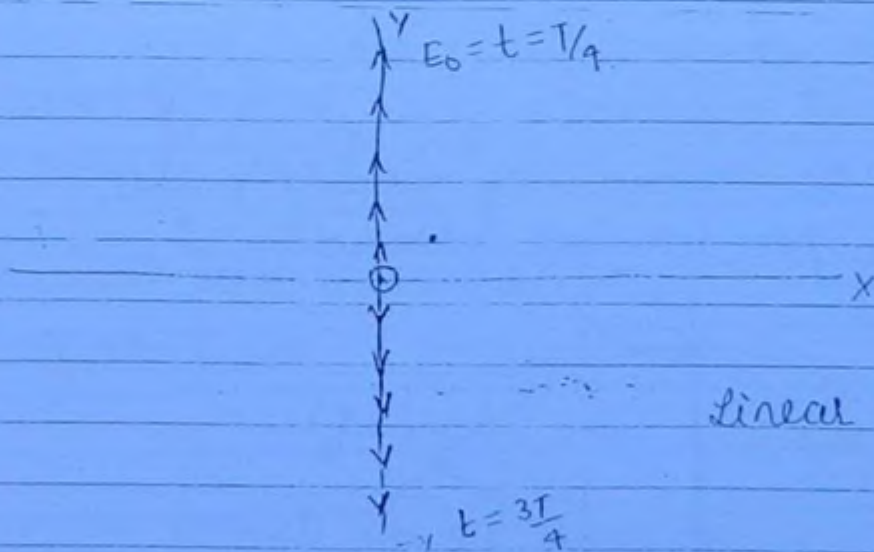 Y
E₀ = t = T/4
X
Linear
-Y t = 3T/4